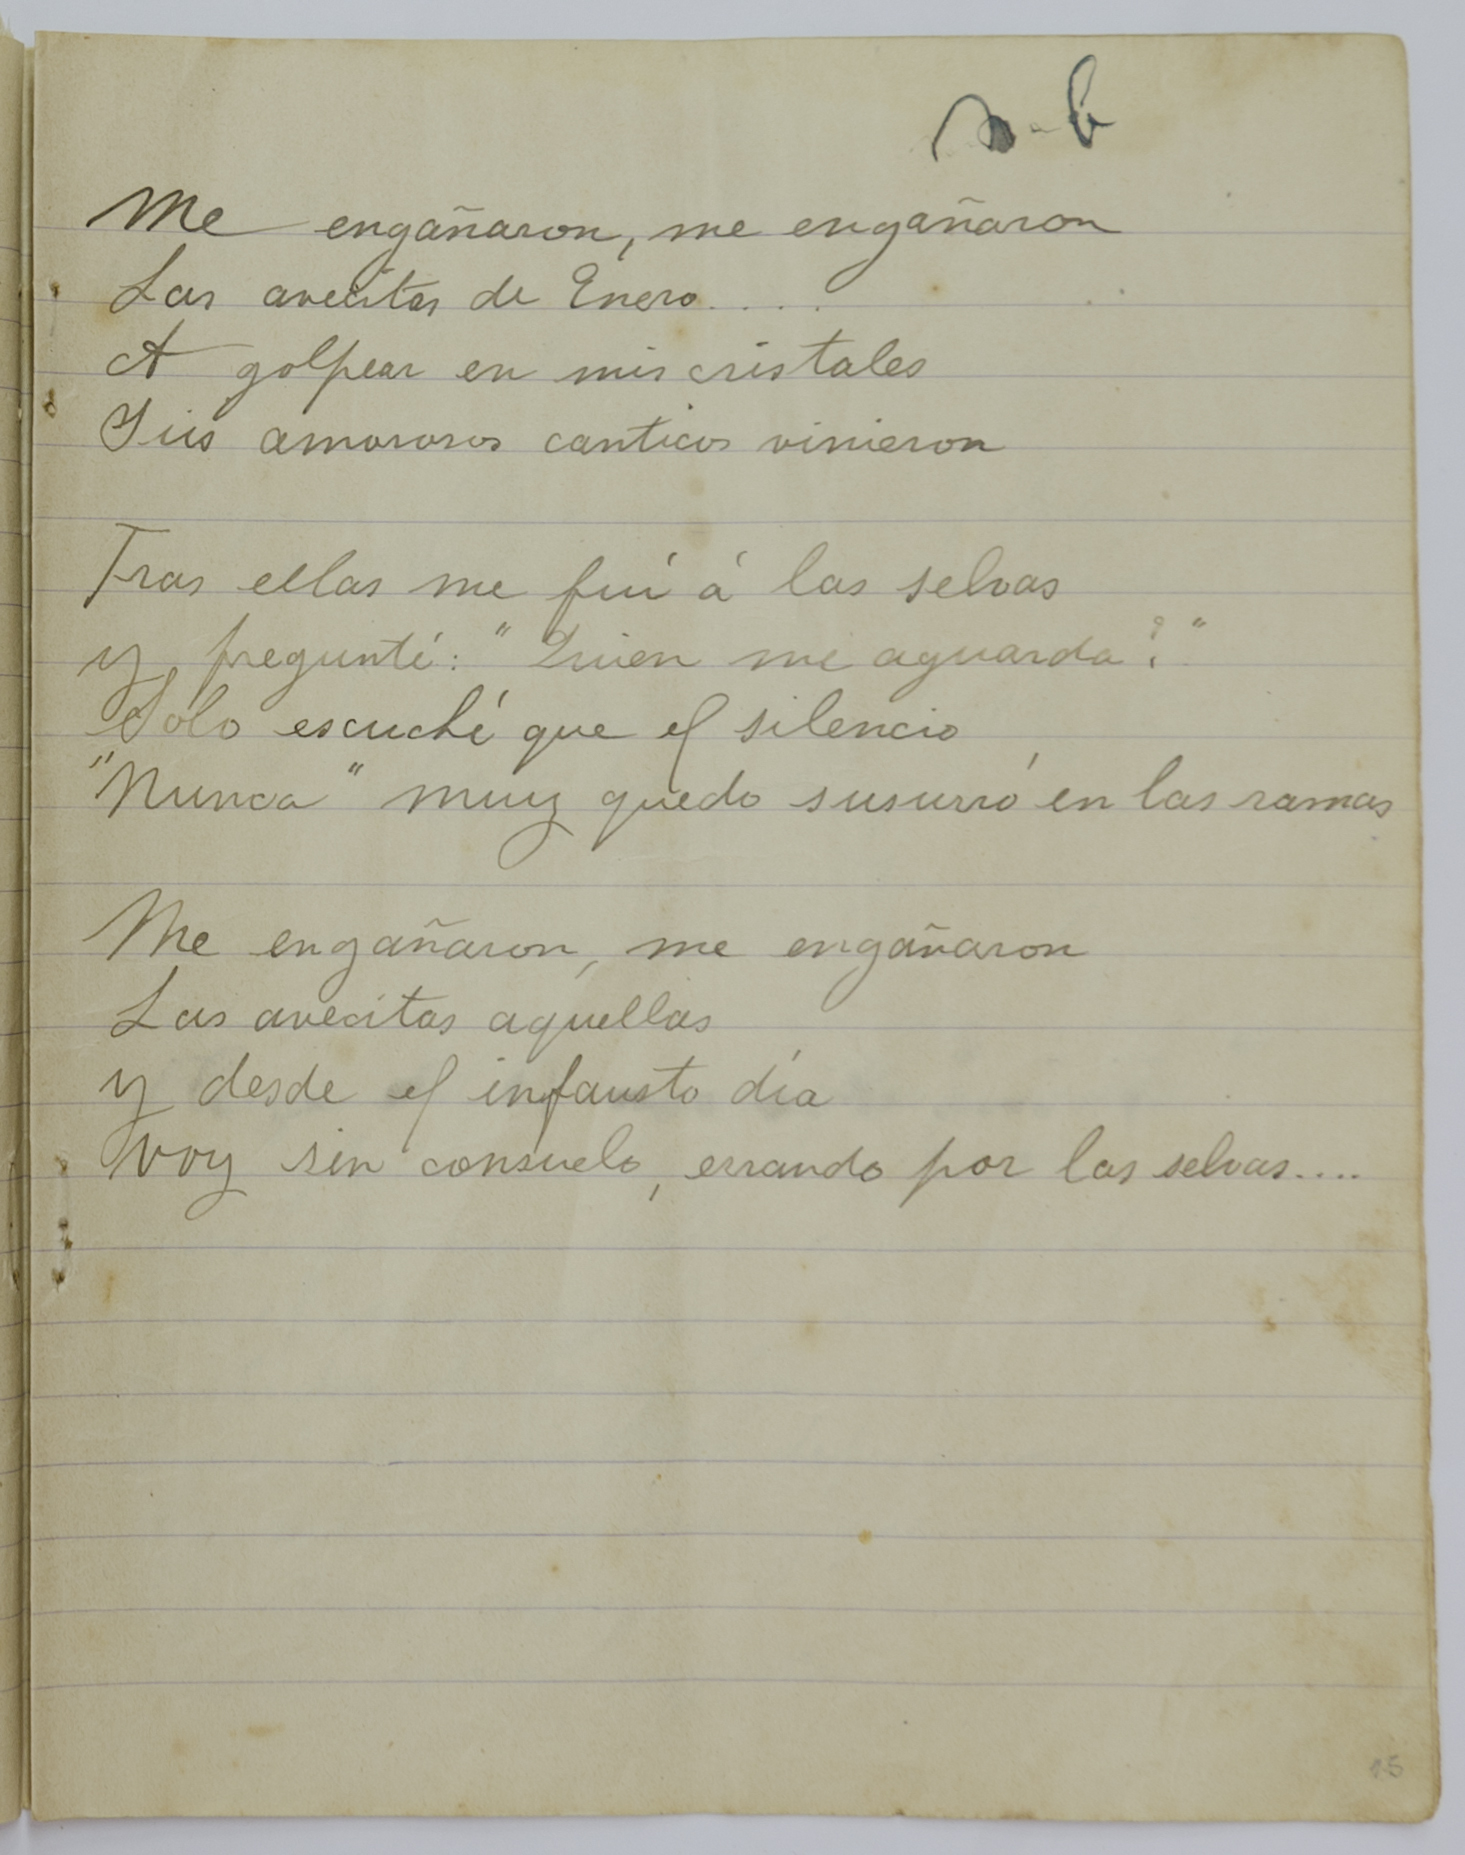 Me engañaron, me engañaron
Las avecitas de Enero....
A golpear en mis cristales
Sus amorosos canticos vinieron
Tras ellas me fuí á las selvas
y pregunté: "Quien me aguarda?"
Solo escuché que el silencio
"Nunca" muy quedo susurró en las ramas
Me engañaron, me engañaron
Las avecitas aquellas
y desde el infausto día
Voy sin consuelo, errando por las selvas....
15